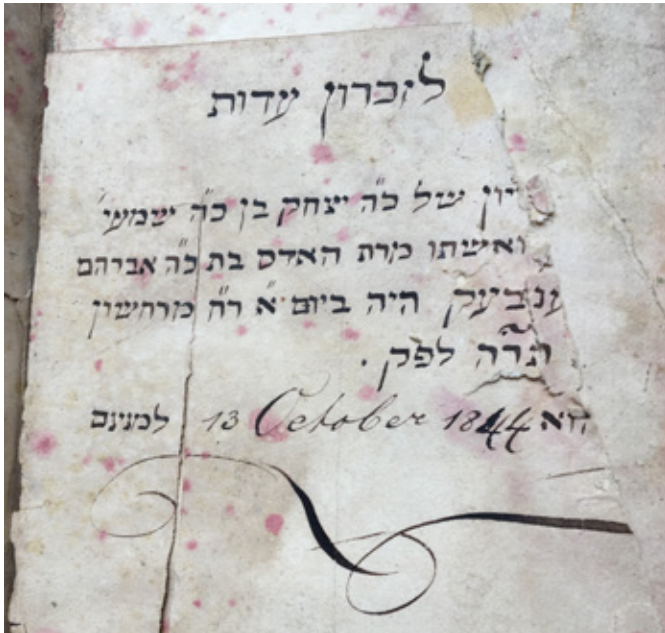 לזכרון עדות
של כ"ה יצחק בן כ"ה ישמעי'
ואשתו מרת האדס בת כ"ה אברהם
היה ביום א' ר"ח מרחשון
תר"ה לפק .
13 October 1844 למנינם